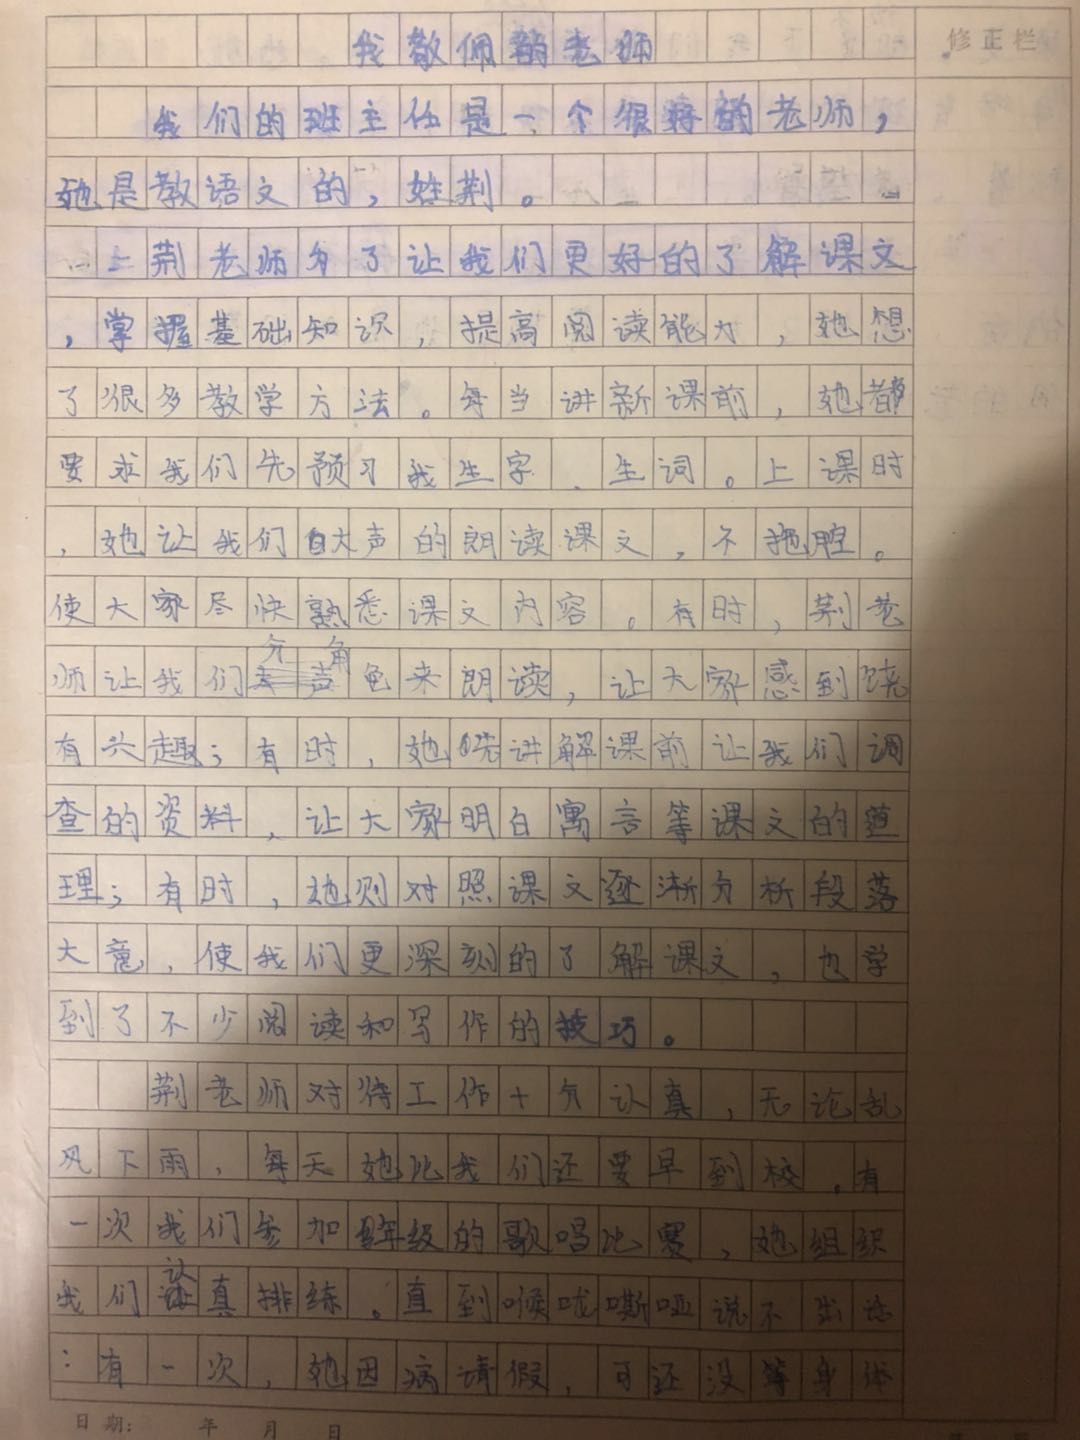 我敬佩的老师
修正栏
我们的班主任是一个很有韵老师，
她是教语文的，姓荆。
上荆老师为了让我们更好的了解课文
，掌握基础知识，提高阅读能力，她想
了很多教学方法。每当讲新课前，她都
要求我们先预习我生字、生词。上课时
，她让我们大声的朗读课文，不拖腔。
使大家尽快熟悉课文内容。有时，荆老
师让我们分角色来朗读，让大家感到饶
有兴趣；有时，她先讲解课前让我们调
查的资料，让大家明白寓言等课文的道
理；有时，她则对照课文逐渐分析段落
大意，使我们更深刻的了解课文，也学
到了不少阅读和写作的技巧。
荆老师对待工作十分认真，无论刮
风下雨，每天她比我们还要早到校。有
一次我们参加年级的歌唱比赛，她组织
我们认真排练。直到喉咙嘶哑说不出话
；有一次，她因病请假，可还没等身体
日期： 年 月 日